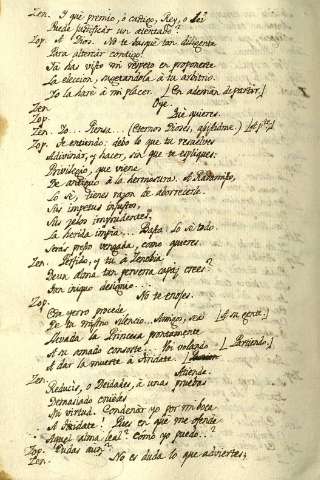 Zen. Y què premio, ò castigo, Rey, o Lei
Puede justificar un atentado?
Zop. A Dios. No te busquè tan diligente
Para altercar contigo.
Tu has visto mi respeto en proponerte
La eleccion, sugetandola à tu arbitrio.
Yo la darè à mi placer. [En ademan de partir.]
Zen. Oye.
Zop. Què quieres.
Zen. Yo... Piensa... (Eternos Dioses, asistidme.) [Ap.te]
Zop. Te entiendo: debo lo que tu resuelves
Adivinar, y hacer, sin que te expliques:
Privilegio, que viene
De antiguo à la hermosura. A Radamisto,
Lo sè, tienes razon de aborrecerle.
Sus impetus injustos,
Sus zelos imprudentes,
La herida impia... Basta: Lo sè todo.
Seràs presto vengada, como quieres.
Zen. Perfido, y tu à Zenobia
De una alma tan perversa capaz crees?
Tan iniquo designio...
Zop. No te enojes.
Ese yerro procede
De tu mismo silencio... Amigos, sea [A su gente.]
Llevada la Princesa prontamente
A su amado consorte... Yo volando [Partiendo.]
A dar la muerte à Tiridate.
Zen. Atiende.
Reducis, o Deidades, à unas pruebas
Demasiado crudas
Mi virtud. Condenar yo por mi boca
A Tiridate! Pues en què me ofende
Aquel alma leal? Cómo yo puedo..?
Zop. Dudas aun?
Zen. No es duda lo que adviertes;